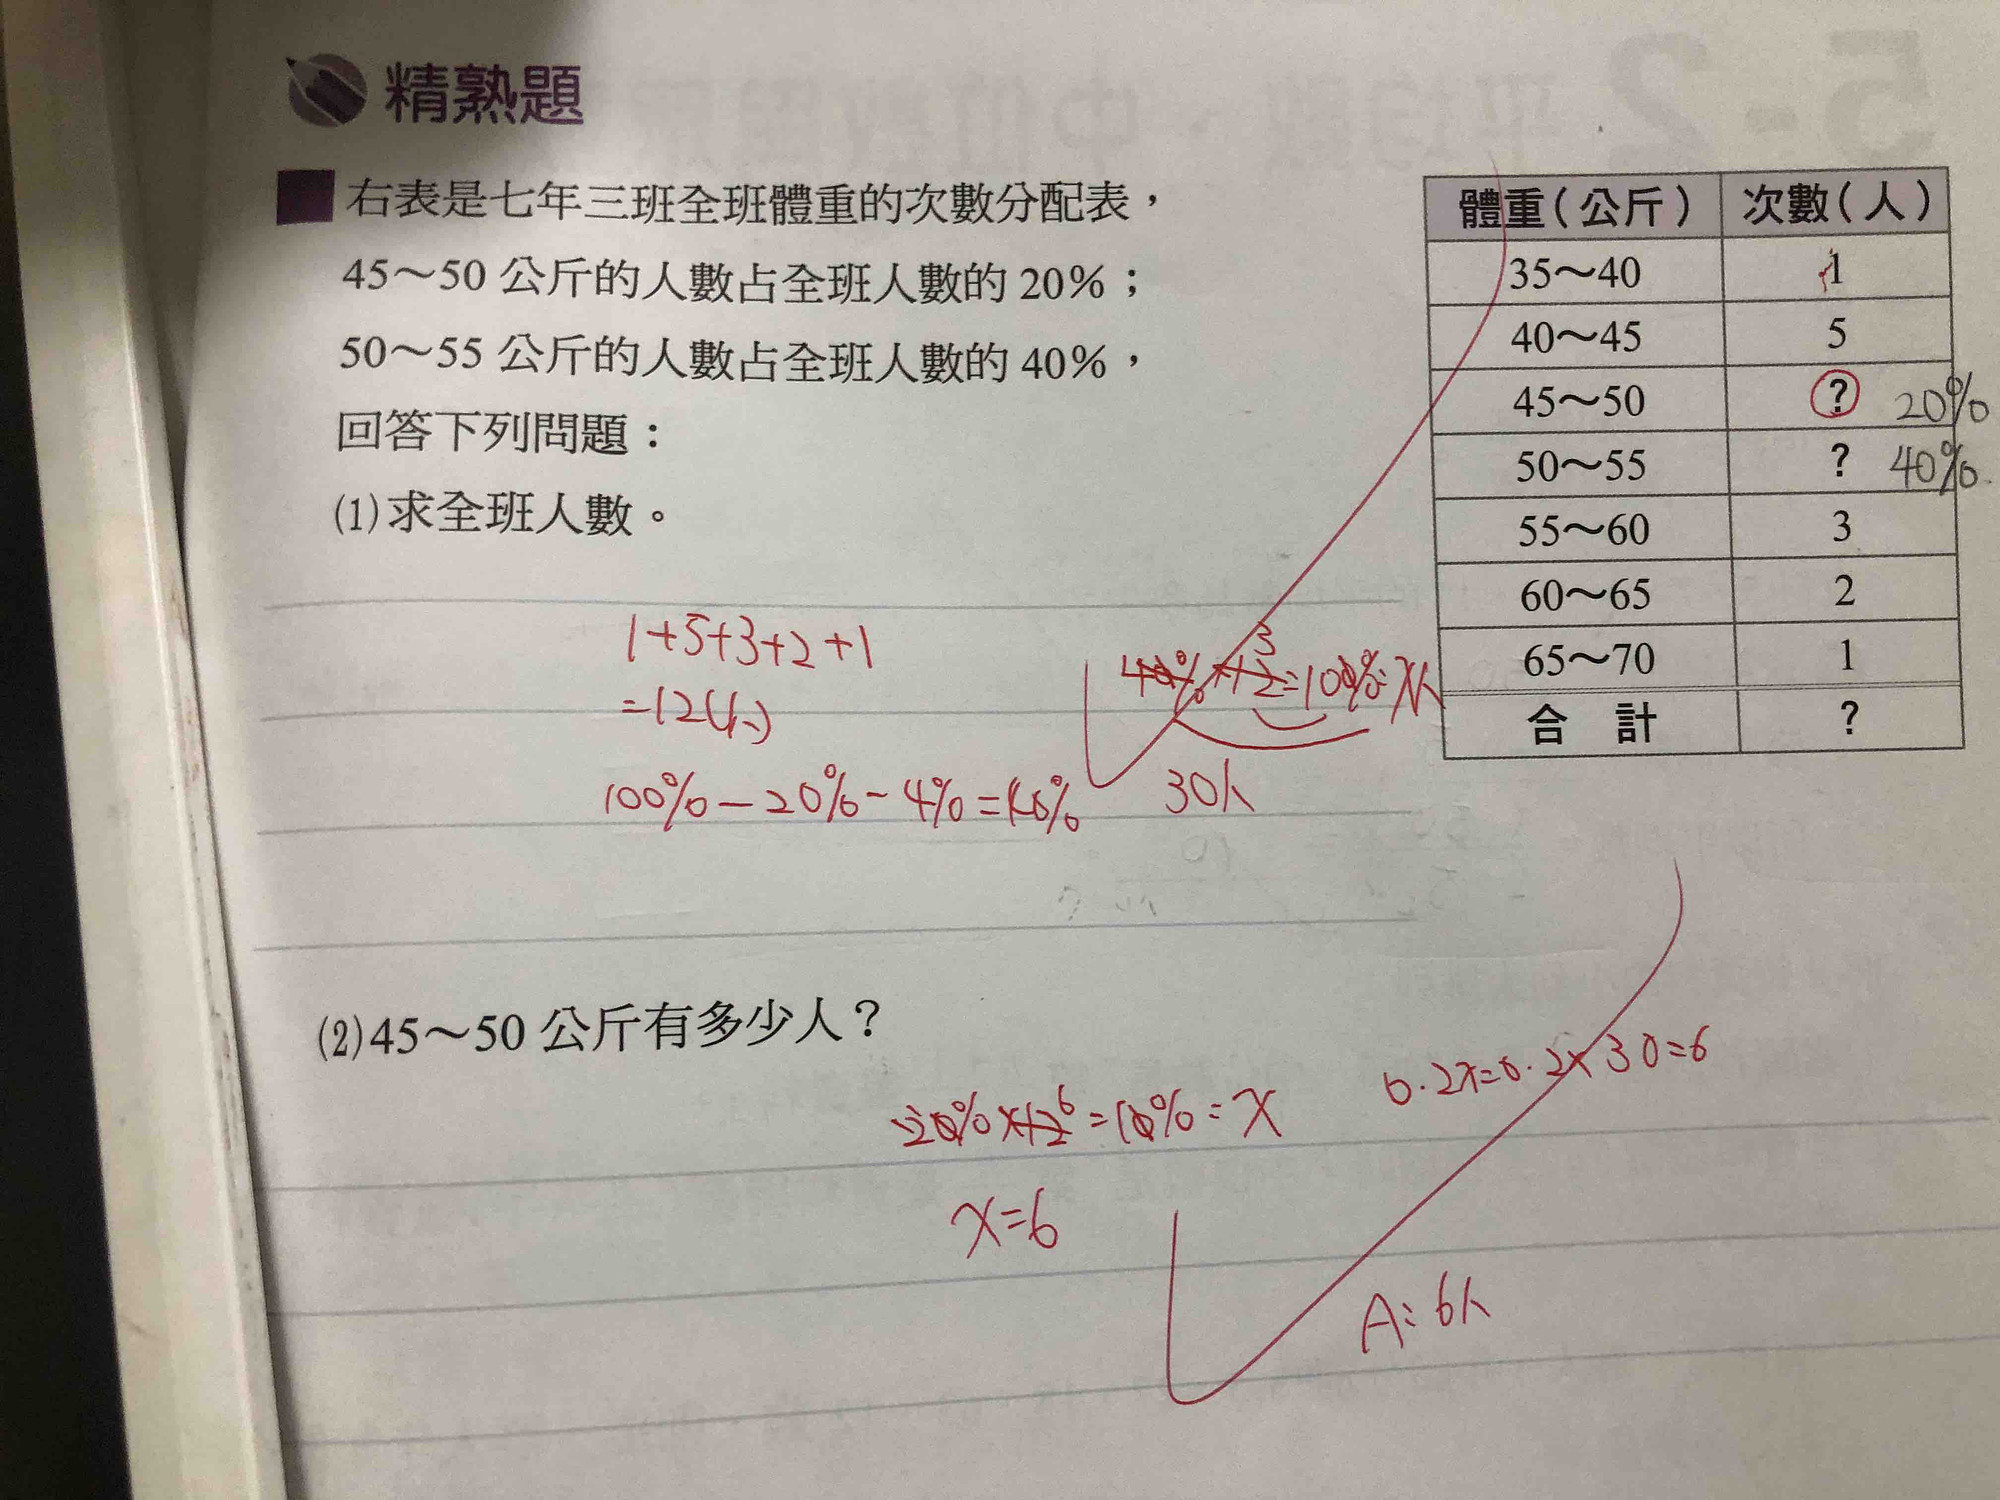 精熟題
右表是七年三班全班體重的次數分配表，
45～50 公斤的人數占全班人數的 20%；
50～55 公斤的人數占全班人數的 40%，
回答下列問題：
(1)求全班人數。
體重(公斤) 次數(人)
35～40 1
40～45 5
45～50 ? 20%
50～55 ? 40%
55～60 3
60～65 2
65～70 1
合 計 ?
1+5+3+2+1
=12(人)
100%-20%-4%=40%
30人
(2)45～50 公斤有多少人？
0.2x=0.2×30=6
x=6
A:6人